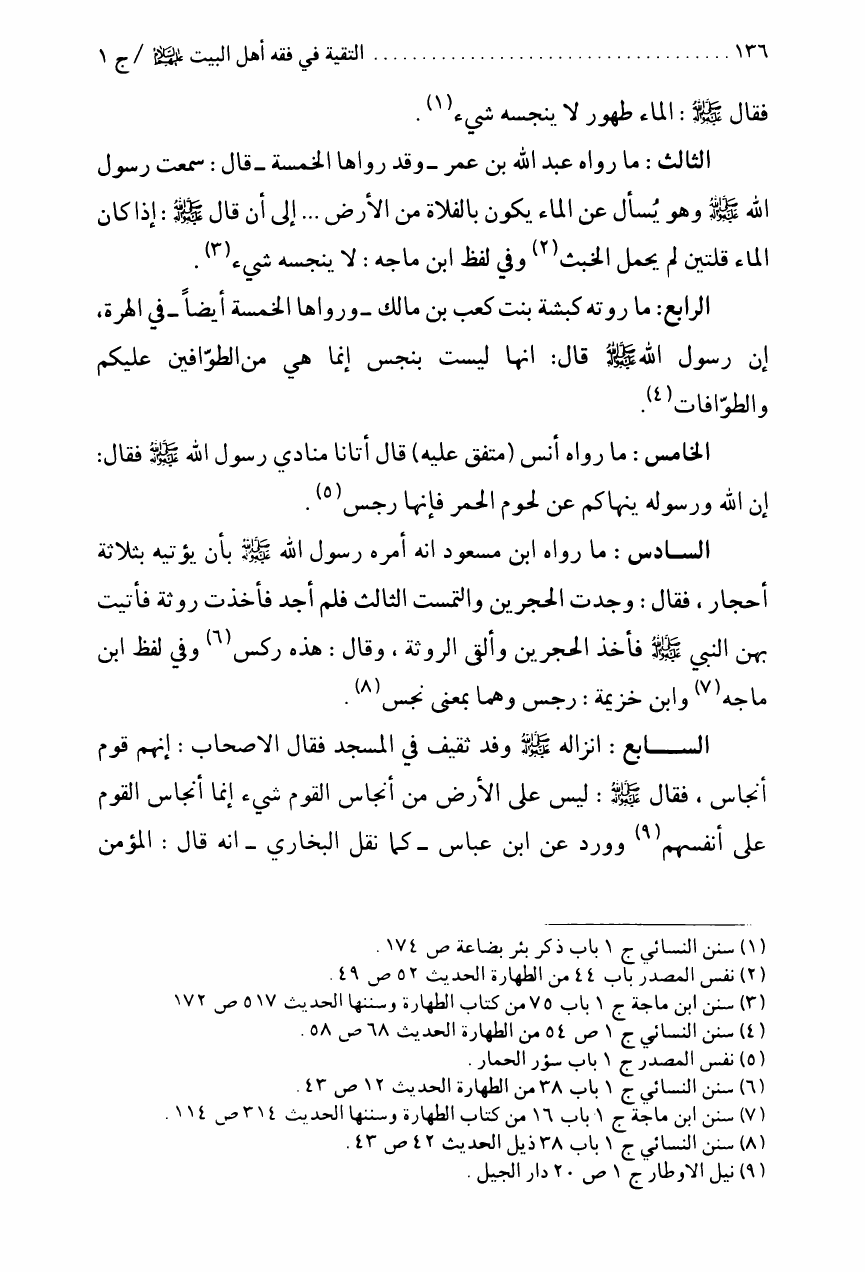 ١٣٦ .................................... التقية في فقه أهل البيت عليهم السلام / ج ١
فقال ﷺ : الماء طهور لا ينجسه شيء(١) .
الثالث : ما رواه عبد الله بن عمر ـ وقد رواها الخمسة ـ قال : سمعت رسول
الله ﷺ وهو يُسأل عن الماء يكون بالفلاة من الأرض ... إلى أن قال ﷺ : إذا كان
الماء قلتين لم يحمل الخبث(٢) وفي لفظ ابن ماجه : لا ينجسه شيء(٣) .
الرابع: ما روته كبشة بنت كعب بن مالك ـ ورواها الخمسة أيضاً ـ في الهرة،
إن رسول الله ﷺ قال: انها ليست بنجس إنما هي من الطوّافين عليكم
والطوّافات(٤).
الخامس : ما رواه أنس (متفق عليه) قال أتانا منادي رسول الله ﷺ فقال:
إن الله ورسوله ينهاكم عن لحوم الحمر فإنها رجس(٥) .
الســادس : ما رواه ابن مسعود انه أمره رسول الله ﷺ بأن يؤتيه بثلاثة
أحجار ، فقال : وجدت الحجرين والتمست الثالث فلم أجد فأخذت روثة فأتيت
بهن النبي ﷺ فأخذ الحجرين وألقى الروثة ، وقال : هذه ركس(٦) وفي لفظ ابن
ماجه(٧) وابن خزيمة : رجس وهما بمعنى نجس(٨) .
الســـابع : انزاله ﷺ وفد ثقيف في المسجد فقال الاصحاب : إنهم قوم
أنجاس ، فقال ﷺ : ليس على الأرض من أنجاس القوم شيء إنما أنجاس القوم
على أنفسهم(٩) وورد عن ابن عباس ـ كما نقل البخاري ـ انه قال : المؤمن
(١) سنن النسائي ج ١ باب ذكر بئر بضاعة ص ١٧٤ .
(٢) نفس المصدر باب ٤٤ من الطهارة الحديث ٥٢ ص ٤٩ .
(٣) سنن ابن ماجة ج ١ باب ٧٥ من كتاب الطهارة وسننها الحديث ٥١٧ ص ١٧٢
(٤) سنن النسائي ج ١ ص ٥٤ من الطهارة الحديث ٦٨ ص ٥٨ .
(٥) نفس المصدر ج ١ باب سؤر الحمار .
(٦) سنن النسائي ج ١ باب ٣٨ من الطهارة الحديث ١٢ ص ٤٣ .
(٧) سنن ابن ماجة ج ١ باب ١٦ من كتاب الطهارة وسننها الحديث ٣١٤ ص ١١٤ .
(٨) سنن النسائي ج ١ باب ٣٨ ذيل الحديث ٤٢ ص ٤٣ .
(٩) نيل الاوطار ج ١ ص ٢٠ دار الجيل .